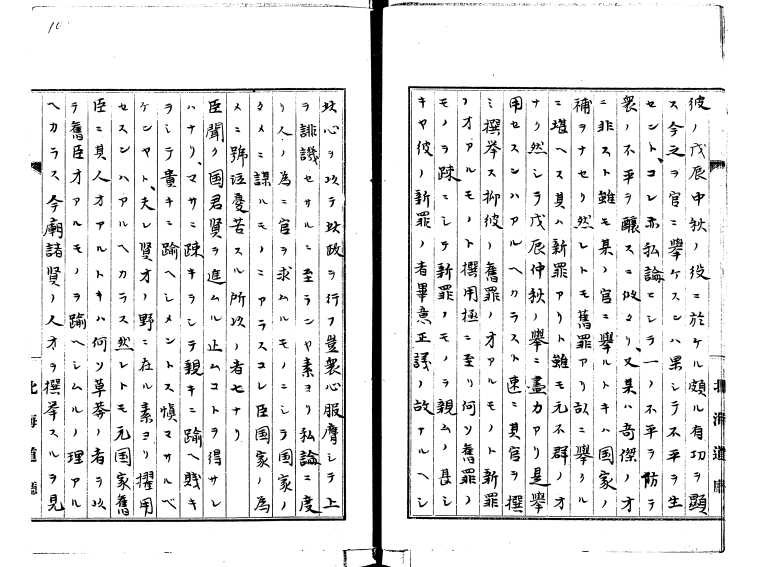 彼ノ戊辰中秋ノ役ニ於ケル頗ル有功ヲ顕
ス今之ヲ官ニ挙ケスンハ果シテ不平ヲ生
セント、コレ亦私論ヒシテ一ノ不平ヲ防テ
衆ノ不平ヲ醸スニ似タリ、又某ハ奇傑ノオ
ニ非スト雖モ某ノ官ニ挙ルトキハ国家ノ
補ヲナセリ然レトモ舊罪アリ故ニ挙ルク
ニ堪ヘス其ハ新罪アリト雖モ元不群ノオ
ナリ然シテ戊辰仲秋ノ擧ニ盡力アリ是挙
用セスンハアルヘカラスト速ニ其官ヲ撰
ミ撰挙ス抑彼ノ舊罪ノオアルモノト新罪
ノオアルモノト撰用極ニ至リ何ソ舊罪ノ
モノヲ疎ニシテ新罪ノモノヲ親ム、甚シ
キヤ彼ノ新罪ノ者畢意正議ノ故アルヘシ
北海道廳
攻心ヲ以テ攻政ヲ行フ豈衆心服膺シテ上
ヲ誹譏セサルニ至ランヤ素ヨリ私論ニ度
リ人ノ為ニ官ヲ求ムルモノニシテ国家ノ
タメニ謀ルモノニアラスコレ臣国家ノ為
メニ號泣憂苦スル所以ノ者七ナリ
臣聞ク国君賢ヲ進ムル止ムコトヲ得サレ
ハナリ、マサニ疎キヲシテ親キニ踰ヘ賎キ
ヲシテ貴キニ踰ヘシメントス慎マサルベ
ケンヤト、夫レ賢オノ野ニ在ル素ヨリ擢用
セスンハアルヘカラス然レトモ元国家舊
臣ニ其人オアルトキハ何ソ草莽ノ者ヲ以
テ舊臣オアルモノヲ踰ヘシムルノ理アル
ヘカラス今廟諸賢ノ人オヲ撰挙スルヲ見
北海道廳